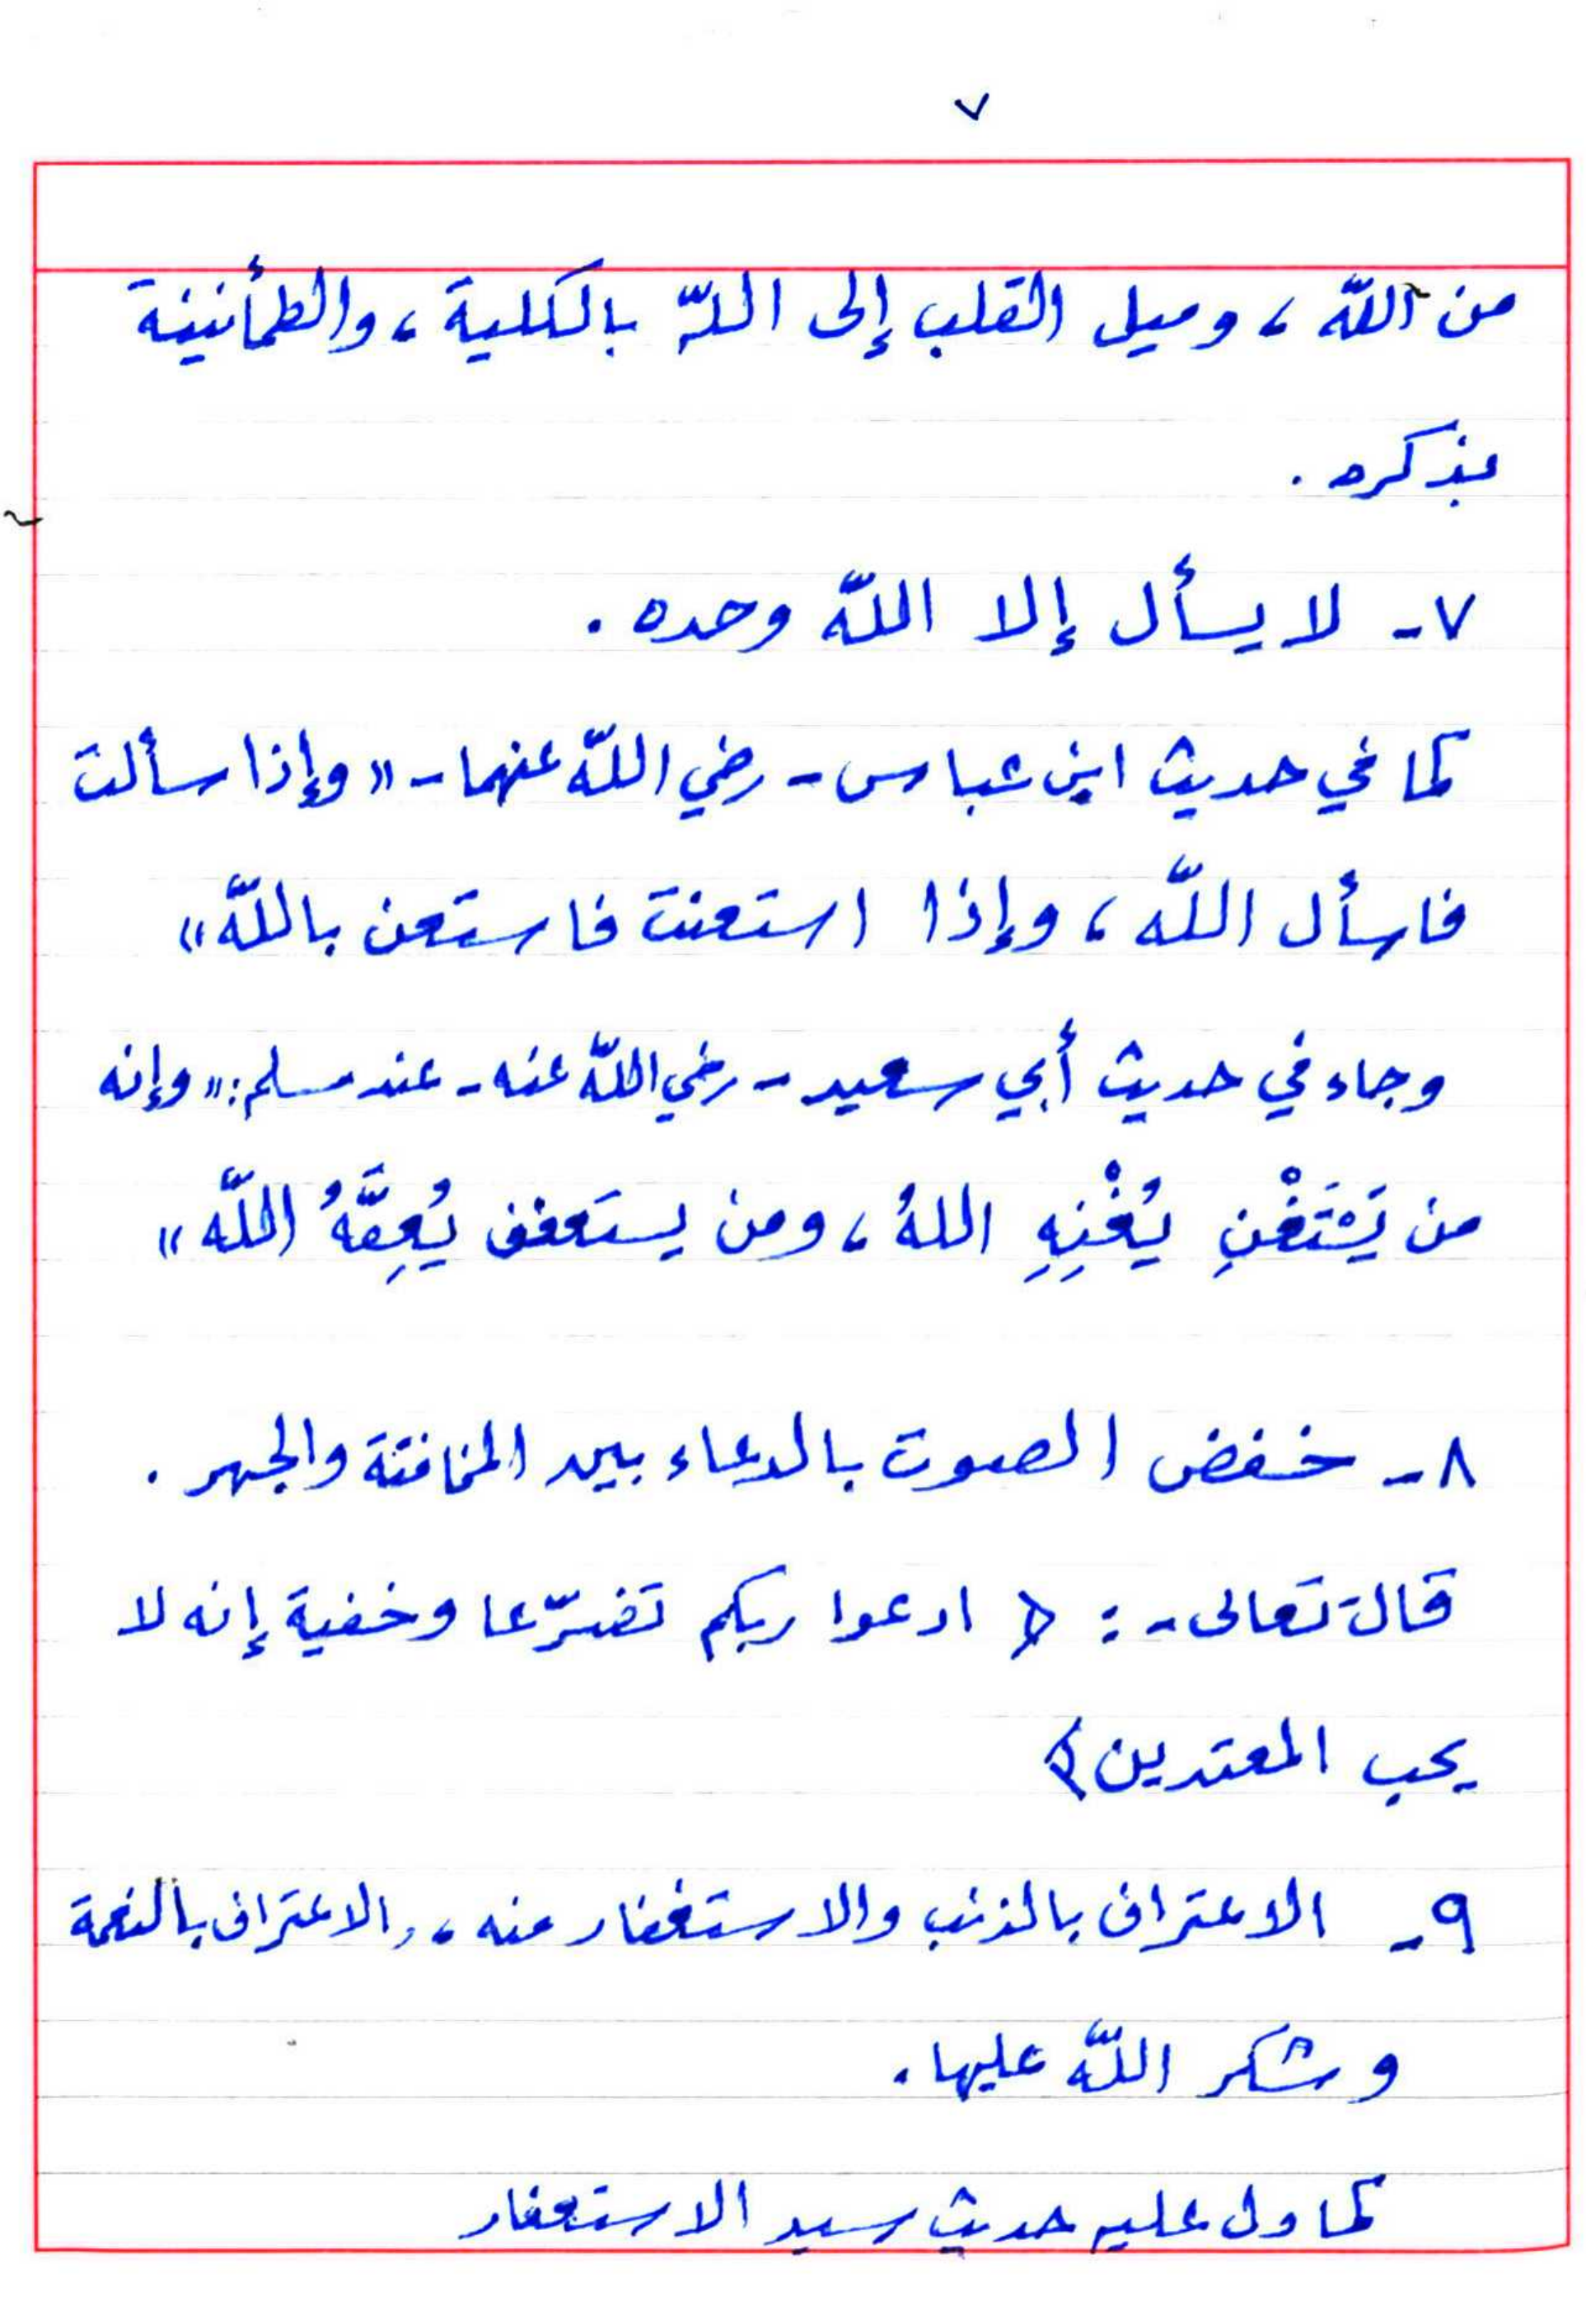 ٧
من الله ، وميل القلب إلى اللهِ بالكلية ، والطمأنينة
بذكره .
٧- لا يسأل إلا الله وحده .
كما في حديث ابن عباس - رضي الله عنهما - « وإذا سألت
فاسأل الله ، وإذا استعنت فاستعن بالله »
وجاء في حديث أبي سعيد - رضي الله عنه - عند مسلم : « وإنه
من يَسْتَغْنِ يُغْنِهِ اللهُ ، ومن يستعفف يُعِفَّهُ الله »
٨- خفض الصوت بالدعاء بين المخافتة والجهر .
قال تعالى - : ﴿ ادعوا ربكم تضرّعا وخفية إنه لا
يحب المعتدين ﴾
٩- الاعتراف بالذنب والاستغفار منه ، والاعتراف بالنعمة
وشكر الله عليها .
كما دل عليه حديث سيد الاستغفار